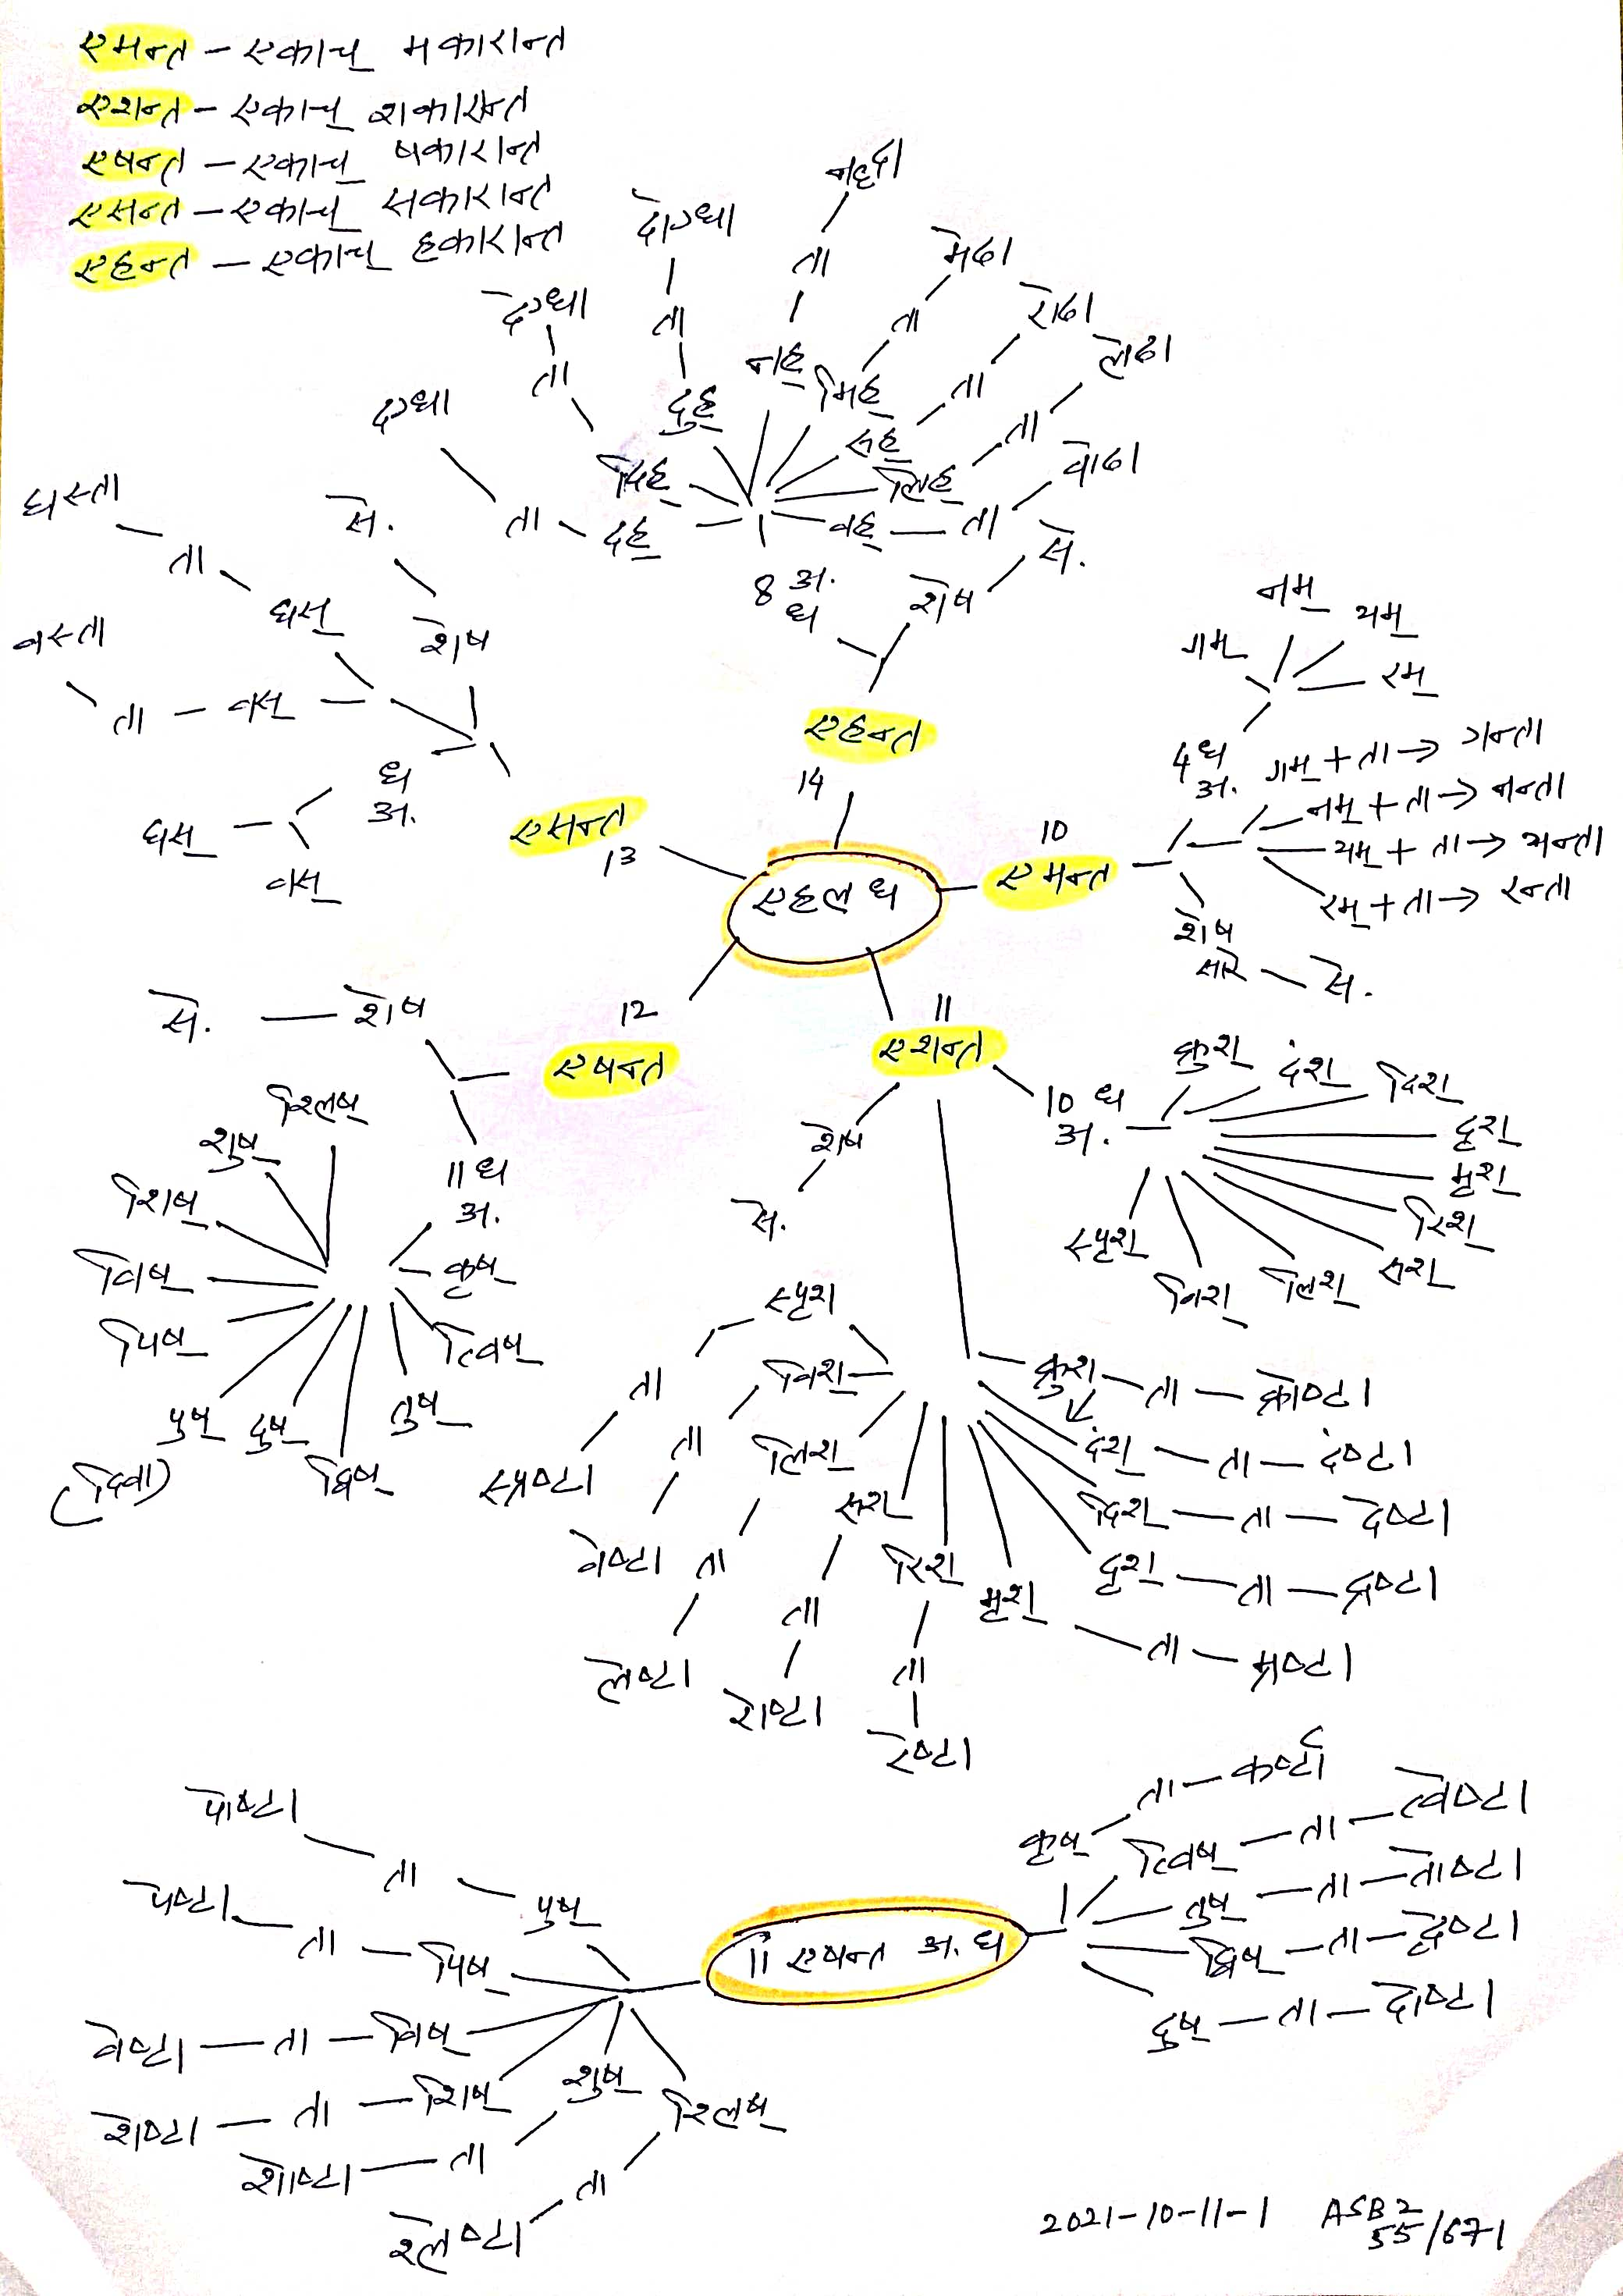 एमन्त – एकाच् मकारान्त
एशन्त – एकाच् शकारान्त
एषन्त – एकाच् षकारान्त
एसन्त – एकाच् सकारान्त
एहन्त – एकाच् हकारान्त
एहल ध
14
एहन्त
8 अ.
ध
शेष
से.
दह् – ता – दग्धा
दिह् – ता – देग्धा
दुह् – ता – दोग्धा
नह् – ता – नद्धा
मिह् – ता – मेढा
रुह् – ता – रोढा
लिह् – ता – लेढा
वह् – ता – वोढा
10
एमन्त
4 ध
अ.
गम्
नम्
यम्
रम्
गम् + ता → गन्ता
नम् + ता → नन्ता
यम् + ता → यन्ता
रम् + ता → रन्ता
शेष
सारे – से.
13
एसन्त
शेष
से.
ध
अ.
घस् – ता – घस्ता
वस् – ता – वस्ता
घस्
वस्
12
एषन्त
शेष – से.
11 ध
अ.
कृष्
त्विष्
तुष्
द्विष्
दुष्
पुष्
(दिवा)
पिष्
विष्
शिष्
शुष्
श्लिष्
11
एशन्त
शेष
से.
10 ध
अ.
क्रुश्
दंश्
दिश्
दृश्
मृश्
रिश्
रुश्
लिश्
विश्
स्पृश्
क्रुश् – ता – क्रोष्टा
दंश् – ता – दंष्टा
दिश् – ता – देष्टा
दृश् – ता – द्रष्टा
मृश् – ता – म्रष्टा
रिश् – ता – रेष्टा
रुश् – ता – रोष्टा
लिश् – ता – लेष्टा
विश् – ता – वेष्टा
स्पृश् – ता – स्प्रष्टा
11 एषन्त अ. ध
कृष् – ता – कर्ष्टा
त्विष् – ता – त्वेष्टा
तुष् – ता – तोष्टा
द्विष् – ता – द्वेष्टा
दुष् – ता – दोष्टा
पुष् – ता – पोष्टा
पिष् – ता – पेष्टा
विष् – ता – वेष्टा
शिष् – ता – शेष्टा
शुष् – ता – शोष्टा
श्लिष् – ता – श्लेष्टा
2021-10-11-1 ASB2
55/671